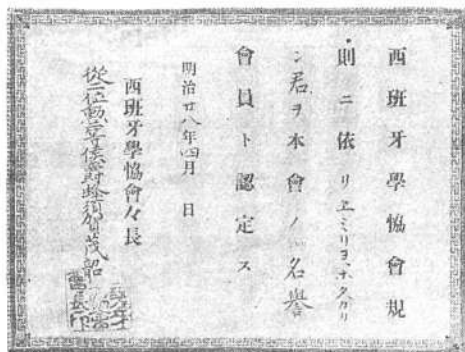 西班牙學恊會規
則ニ依リヱミリヲ、ホ、タカリ
ン君ヲ本會ノ名譽
會員ト認定ス
明治廿八年四月 日
西班牙學恊會々長
侯爵蜂須賀茂韶